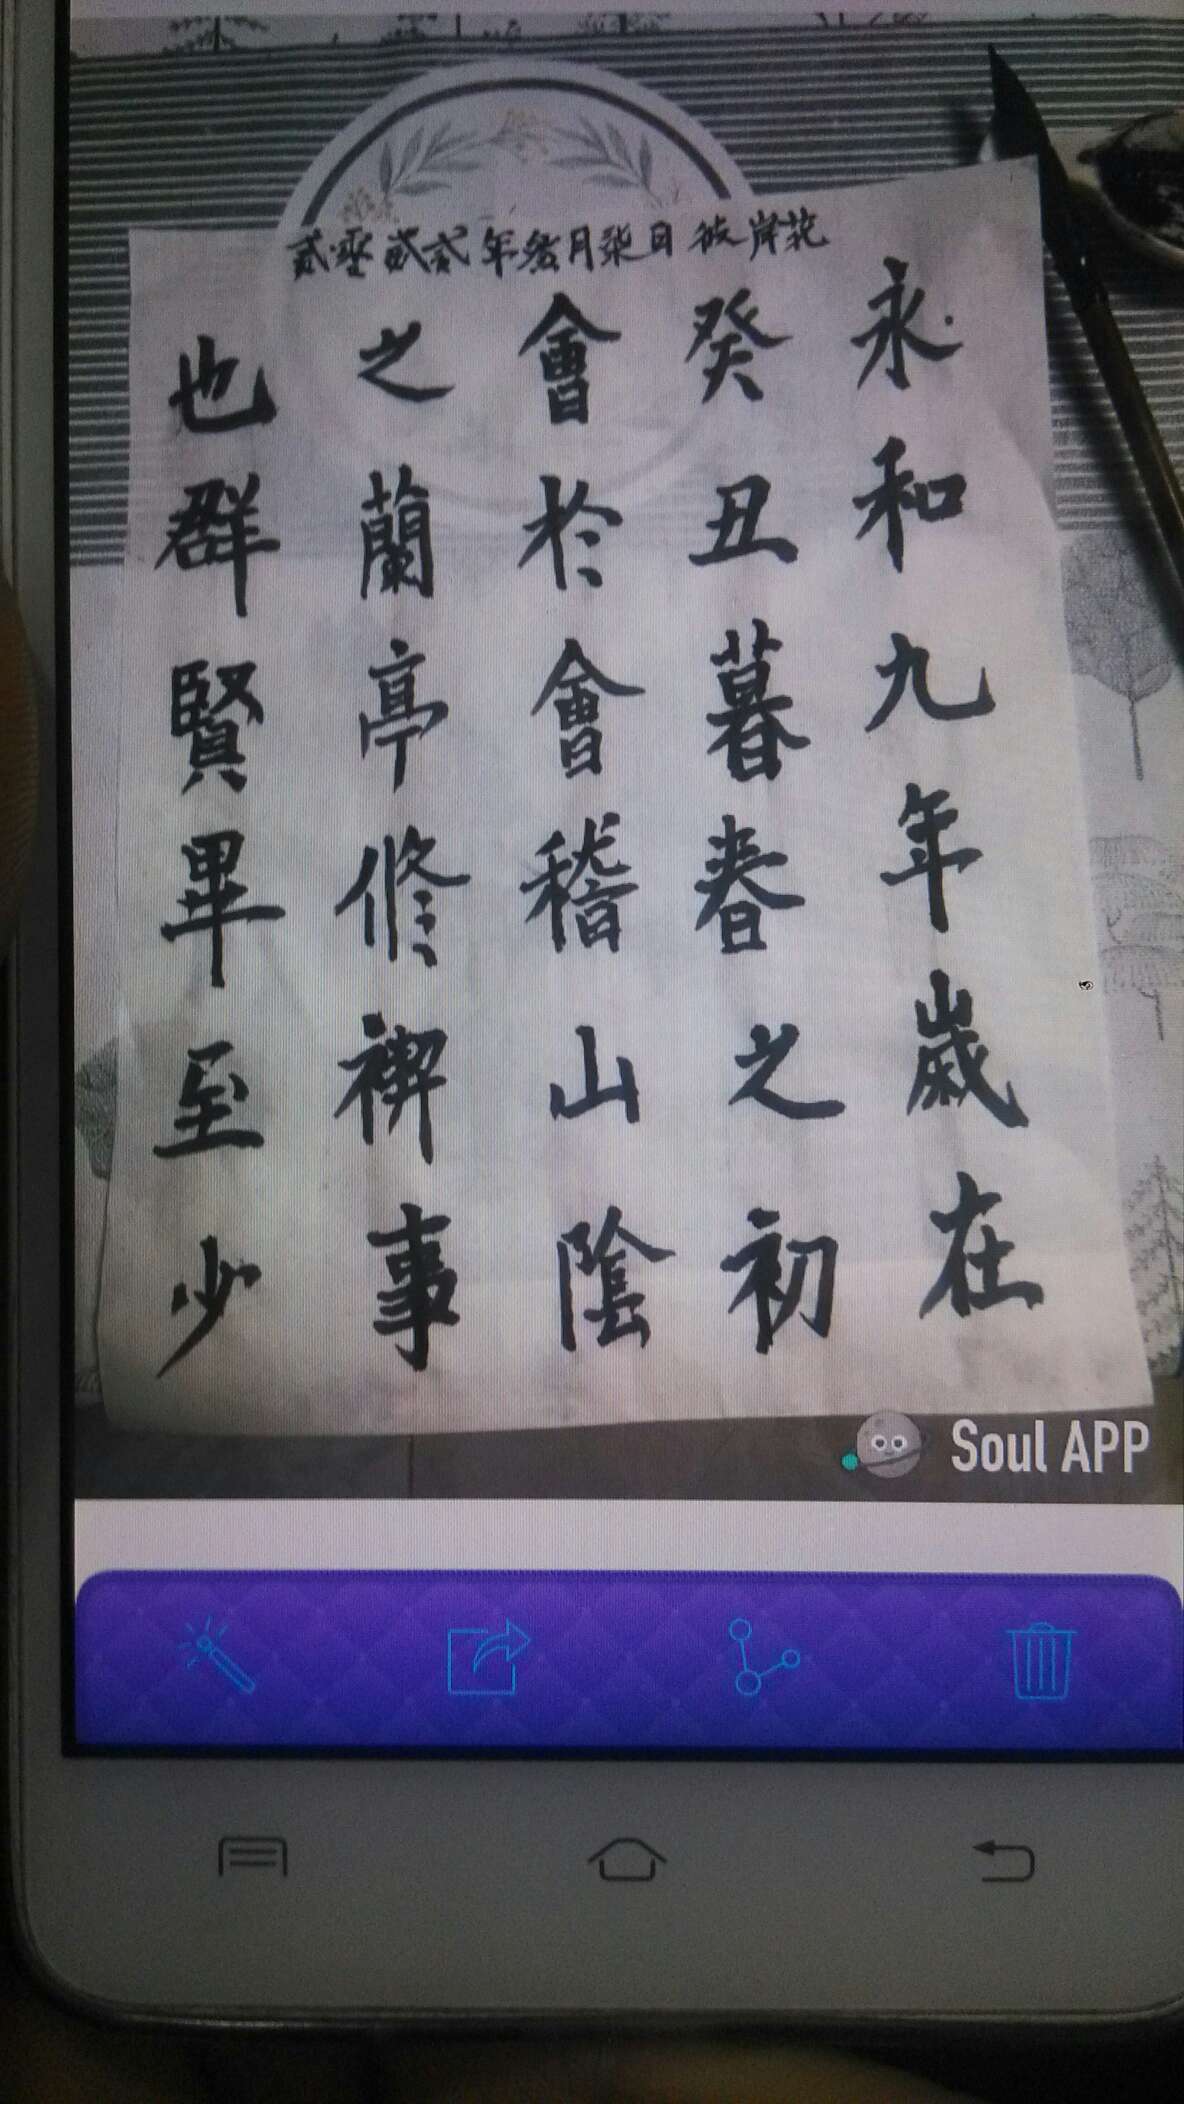 永和九年歲在
癸丑暮春之初
會於會稽山陰
之蘭亭修禊事
也群賢畢至少
貳零貳貳年叁月柒日彼岸花
Soul APP